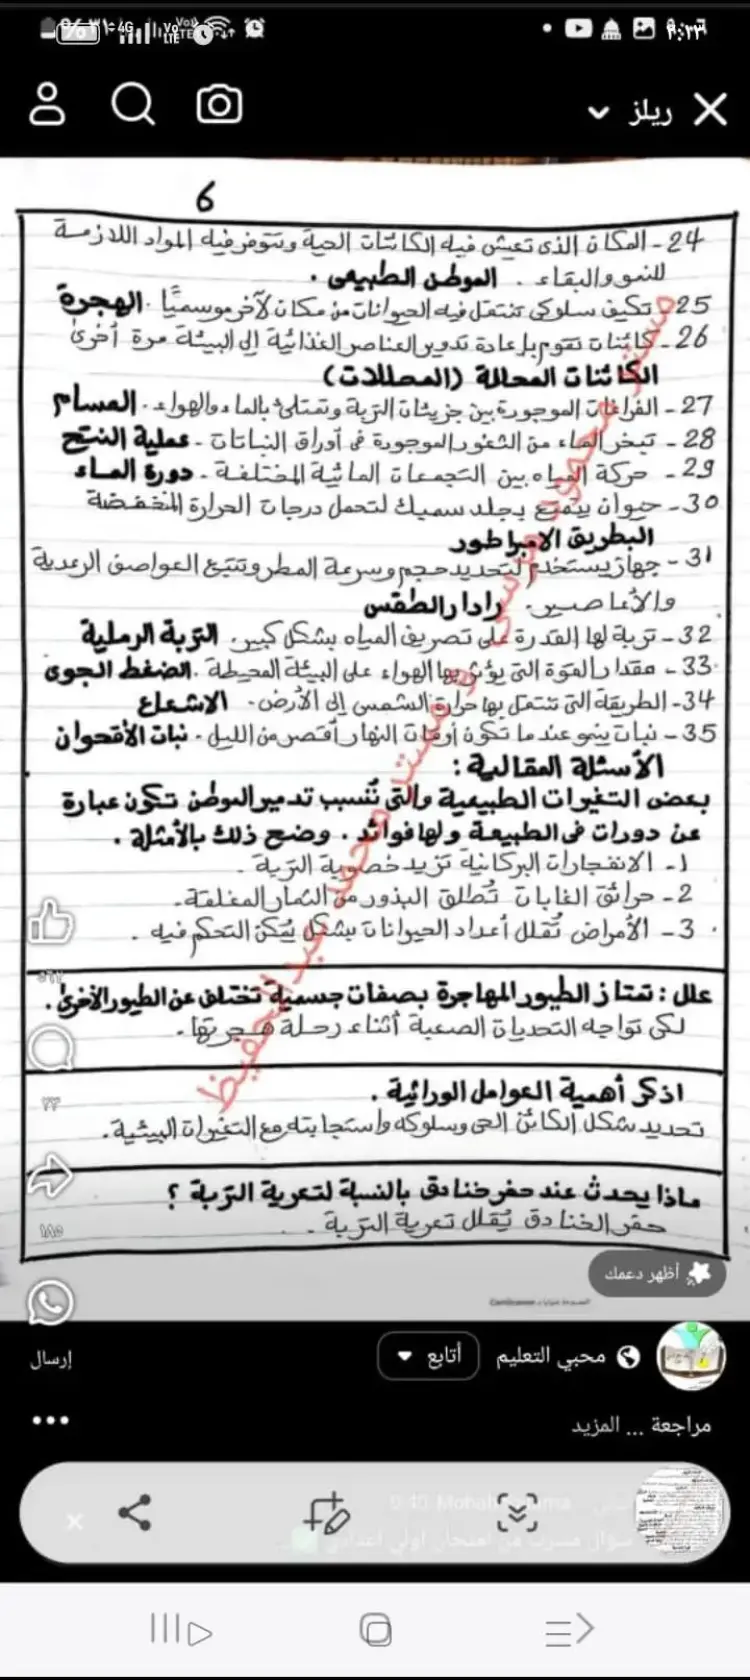 ٩:٢٣
4G
ريلز
6
24 - المكان الذى تعيش فيه الكائنات الحية وتتوفر فيه المواد اللازمة
للنمو والبقاء . الموطن الطبيعى .
25 - تكيف سلوكى تنتقل فيه الحيوانات من مكان لآخر موسميًّا . الهجرة
26 - كائنات تقوم بإعادة تدوير العناصر الغذائية إلى البيئة مرة أخرى
الكائنات المحللة (المحللات)
27 - الفراغات الموجودة بين جزيئات التربة وتمتلئ بالماء والهواء . المسام
28 - تبخر الماء من الثغور الموجودة فى أوراق النباتات - عملية النتح
29 - حركة المياه بين التجمعات المائية المختلفة . دورة الماء
30 - حيوان يتمتع بجلد سميك لتحمل درجات الحرارة المنخفضة
البطريق الامبراطور
31 - جهاز يستخدم لتحديد حجم وسرعة المطر وتتبع العواصف الرعدية
والأعاصير . رادار الطقس
32 - تربة لها القدرة على تصريف المياه بشكل كبير . التربة الرملية
33 - مقدار القوة التى يؤثر بها الهواء على البيئة المحيطة . الضغط الجوى
34 - الطريقة التى تنتقل بها حرارة الشمس إلى الأرض . الاشعاع
35 - نبات ينمو عندما تكون أوقات النهار أقصر من الليل . نبات الأقحوان
الأسئلة المقالية :
بعض التغيرات الطبيعية والتى تُسبب تدمير الموطن تكون عبارة
عن دورات فى الطبيعة ولها فوائد . وضح ذلك بالأمثلة .
1 - الانفجارات البركانية تزيد خصوبة التربة .
2 - حرائق الغابات تُطلق البذور من الثمار المغلقة .
3 - الأمراض تُقلل أعداد الحيوانات بشكل يُمكن التحكم فيه .
علل : تمتاز الطيور المهاجرة بصفات جسمية تختلف عن الطيور الأخرى .
لكى تواجه التحديات الصعبة أثناء رحلة هجرتها .
اذكر أهمية العوامل الوراثية .
تحديد شكل الكائن الحى وسلوكه واستجابته مع التغيرات البيئية .
ماذا يحدث عند حفر خنادق بالنسبة لتعرية التربة ؟
حفر الخنادق يُقلل تعرية التربة .
٢٣
١٨٥
أظهر دعمك
محبي التعليم
أتابع
إرسال
مراجعة ... المزيد